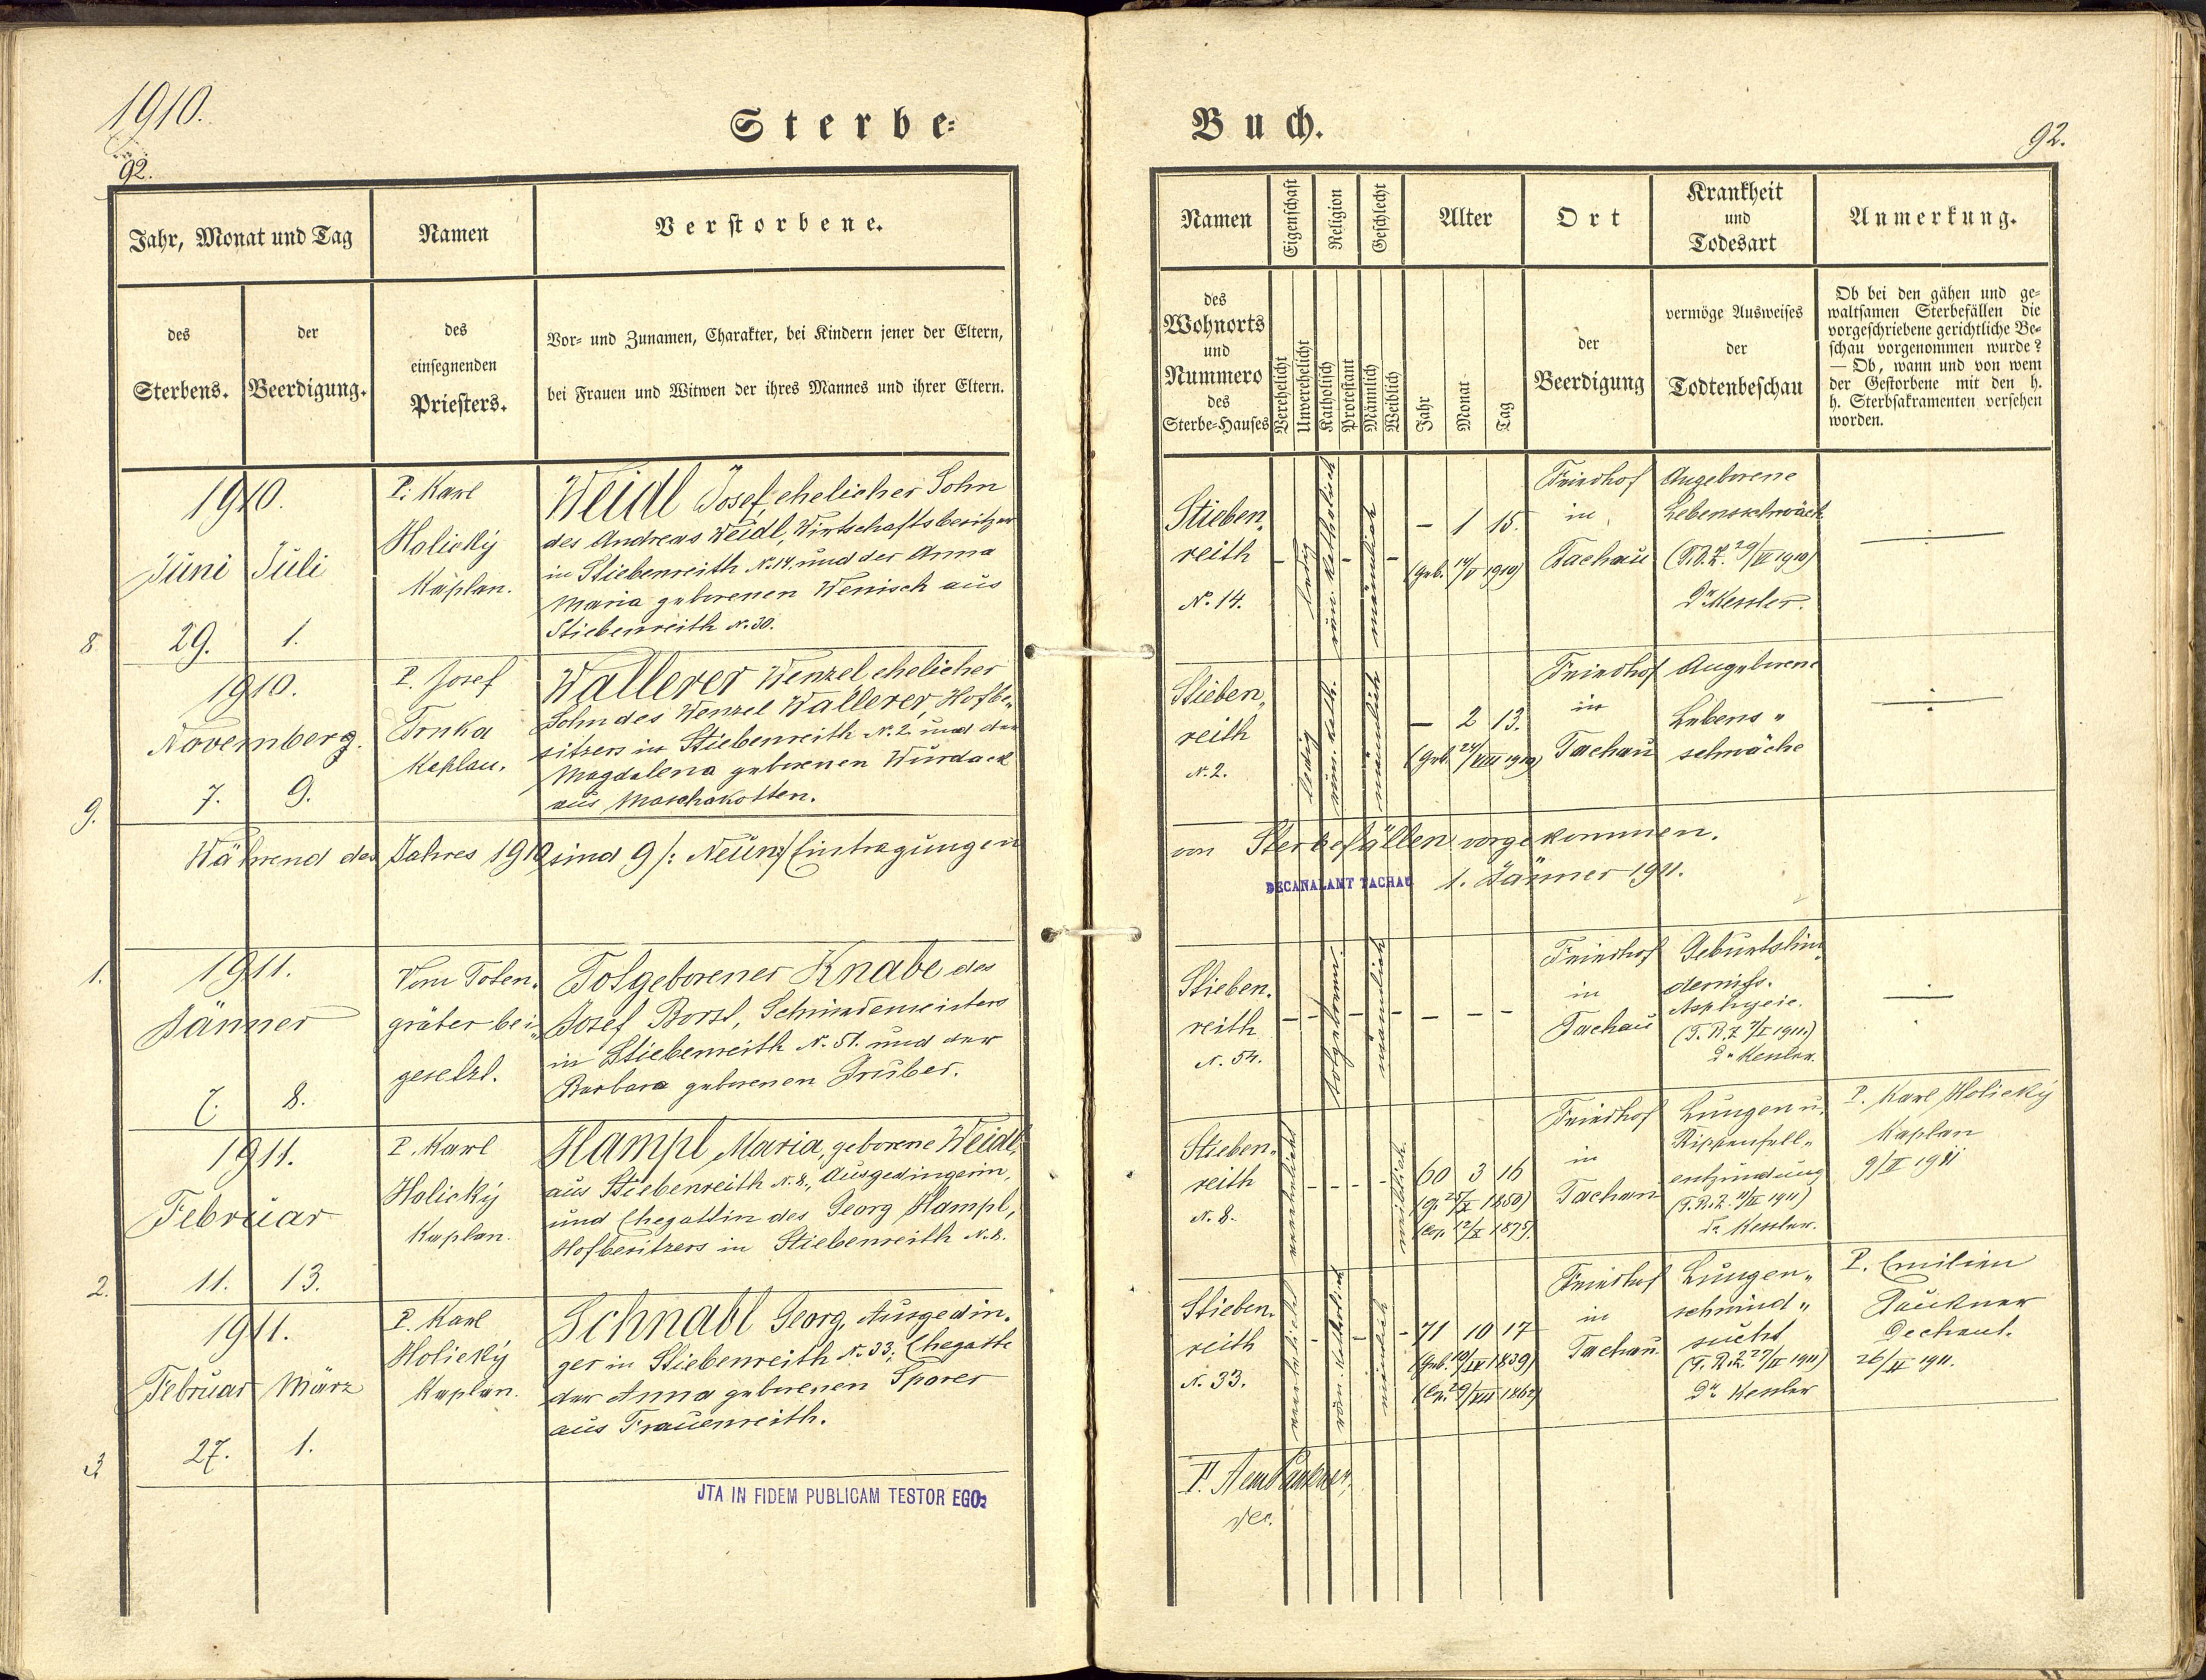 1910.
92.
Sterbe=
Jahr, Monat und Tag
Namen
Verstorbene.
des
Sterbens.
der
Beerdigung.
des
einsegnenden
Priesters.
Vor- und Zunamen, Charakter, bei Kindern jener der Eltern,
bei Frauen und Witwen der ihres Mannes und ihrer Eltern.
8
1910.
Juni Juli
29. 1.
P. Karl
Holický
Kaplan.
Weidl Josef, ehelicher Sohn
des Andreas Weidl, Wirtschaftsbesitzer
in Stiebenreith N. 14. und der Anna
Maria geborenen Wenisch aus
Stiebenreith N. 30.
9.
1910.
November 9.
7. 9.
P. Josef
Trnka
Kaplan.
Wallerer Wenzel, ehelicher
Sohn des Wenzel Wallerer, Hofbe„
sitzers in Stiebenreith N. 2. und der
Magdalena geborenen Wurdack
aus Maschakotten.
Während des Jahres 1910 sind 9 /: Neun :/ Eintragungen
1.
1911.
Jänner
7. 8.
Vom Toten„
gräber bei„
gesetzt.
Totgeborener Knabe des
Josef Borst, Schmiedemeisters
in Stiebenreith N. 51. und der
Barbara geborenen Gruber.
2.
1911.
Februar
11. 13.
P. Karl
Holický
Kaplan.
Hampl Maria, geborene Weidl,
aus Stiebenreith N. 8., Ausgedingerin,
und Ehegattin des Georg Hampl,
Hofbesitzers in Stiebenreith N. 8.
3
1911.
Februar März
27. 1.
P. Karl
Holický
Kaplan.
Schnabl Georg, Ausgedin„
ger in Stiebenreith N. 33; Ehegatte
der Anna geborenen Sporer
aus Frauenreith.
JTA IN FIDEM PUBLICAM TESTOR EGO:
Buch.
92.
Namen
Eigenschaft
Religion
Geschlecht
Alter
Ort
Krankheit
und
Todesart
Anmerkung.
des
Wohnorts
und
Nummero
des
Sterbe=Hauses
Verehelicht
Unverehelicht
Katholisch
Protestant
Männlich
Weiblich
Jahr
Monat
Tag
der
Beerdigung
vermöge Ausweises
der
Todtenbeschau
Ob bei den gähen und ge-
waltsamen Sterbefällen die
vorgeschriebene gerichtliche Be-
schau vorgenommen wurde?
— Ob, wann und von wem
der Gestorbene mit den h.
h. Sterbsakramenten versehen
worden.
Stieben„
reith
N. 14.
ledig
röm. katholisch
männlich
– 1 15.
(geb. 14/V 1910)
Friedhof
in
Tachau
Angeborene
Lebensschwäch.
(T.B.Z. 29/VI 1910)
Dr. Kessler.
Stieben„
reith
N. 2.
ledig
röm. kath.
männlich
– 2 13.
(geb. 24/VIII 1910)
Friedhof
in
Tachau
Angeborene
Lebens„
schwäche
von Sterbefällen vorgekommen.
DECANALAMT TACHAU
1. Jänner 1911.
Stieben„
reith
N. 54.
totgeboren
männlich
Friedhof
in
Tachau
Geburtshin„
derniss.
Asphyxie.
(T.B.Z. 7/I 1911.)
Dr. Kessler.
Stieben„
reith
N. 8.
verehelicht
weiblich
60 3 16
(g. 25/X 1850)
(cop. 12/X 1875)
Friedhof
in
Tachau
Lungen u.
Rippenfell„
entzündung
(T.B.Z. 11/II 1911)
Dr. Kessler.
P. Karl Holický
Kaplan
9/II 1911
Stieben„
reith
N. 33.
verehelicht
röm. katholisch
männlich
71 10 17
(geb. 10/IV 1839)
(cop. 29/VII 1862)
Friedhof
in
Tachau
Lungen„
schwind„
sucht
(T.B.Z. 27/II 1911)
Dr. Kessler
P. Emilian
Paukner
Dechant.
26/II 1911.
P. Aem Paukner,
Dec.